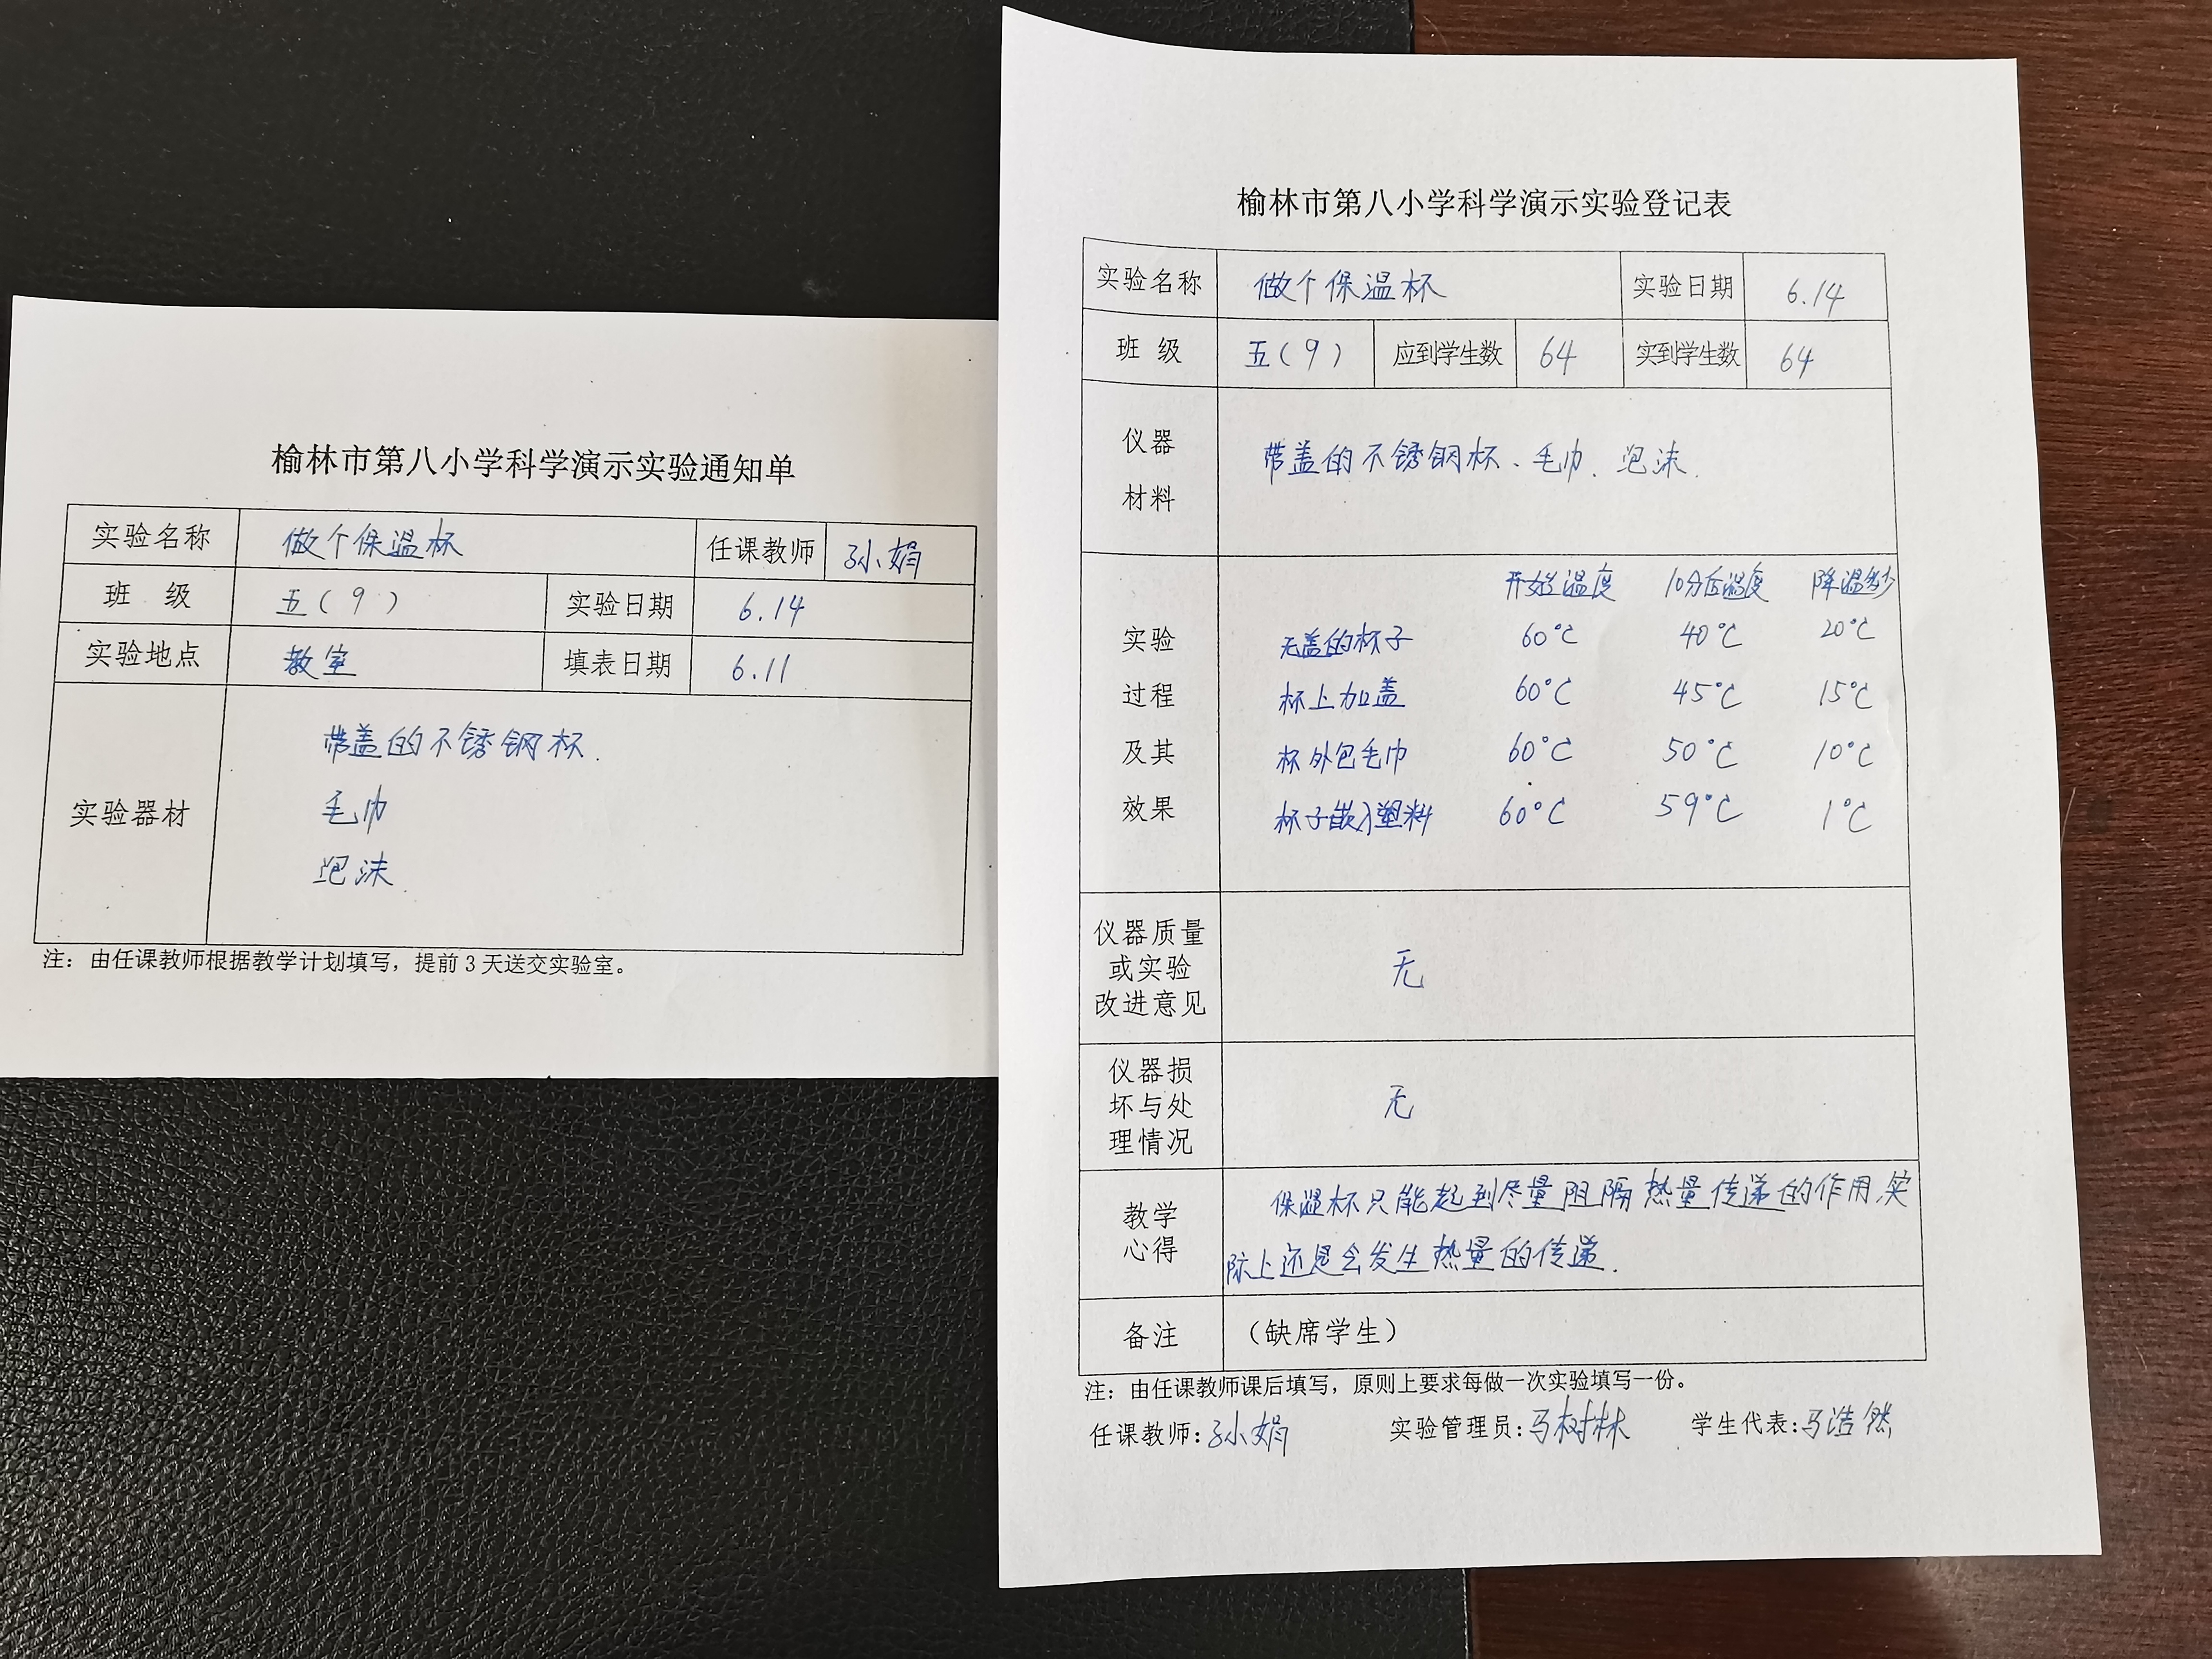 榆林市第八小学科学演示实验通知单
实验名称 做个保温杯 任课教师 孙娟
班 级 五(9) 实验日期 6.14
实验地点 教室 填表日期 6.11
实验器材
带盖的不锈钢杯.
毛巾
泡沫.
注：由任课教师根据教学计划填写，提前3天送交实验室。
榆林市第八小学科学演示实验登记表
实验名称 做个保温杯 实验日期 6.14
班 级 五(9) 应到学生数 64 实到学生数 64
仪器
材料
带盖的不锈钢杯、毛巾、泡沫.
开始温度 10分后温度 降温多少
实验 无盖的杯子 60℃ 40℃ 20℃
过程 杯上加盖 60℃ 45℃ 15℃
及其 杯外包毛巾 60℃ 50℃ 10℃
效果 杯子嵌入塑料 60℃ 59℃ 1℃
仪器质量
或实验 无
改进意见
仪器损
坏与处 无
理情况
教学
心得
保温杯只能起到尽量阻隔热量传递的作用,实
际上还是会发生热量的传递.
备注 （缺席学生）
注：由任课教师课后填写，原则上要求每做一次实验填写一份。
任课教师:孙娟 实验管理员:马树林 学生代表:马浩然